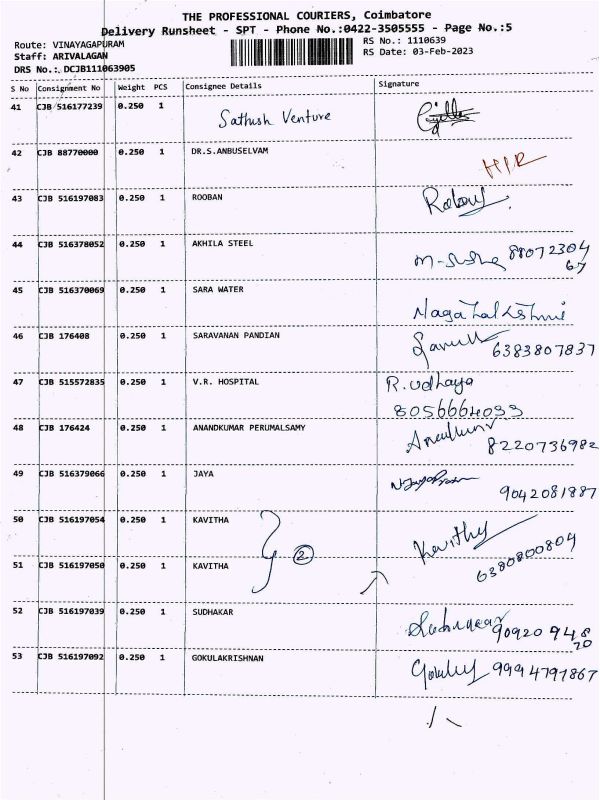 THE PROFESSIONAL COURIERS, Coimbatore
Delivery Runsheet - SPT - Phone No.:0422-3505555 - Page No.:5
Route: VINAYAGAPURAM RS No.: 1110639
Staff: ARIVALAGAN RS Date: 03-Feb-2023
DRS No.: DCJB111063905
S No Consignment No Weight PCS Consignee Details Signature
41 CJB 516177239 0.250 1 Sathush Venture
42 CJB 88770000 0.250 1 DR.S.ANBUSELVAM
43 CJB 516197083 0.250 1 ROOBAN
44 CJB 516378052 0.250 1 AKHILA STEEL 88072304
67
45 CJB 516370069 0.250 1 SARA WATER Nagahalkshmi
46 CJB 176408 0.250 1 SARAVANAN PANDIAN 6383807837
47 CJB 515572835 0.250 1 V.R. HOSPITAL R.udhaya
8056664033
48 CJB 176424 0.250 1 ANANDKUMAR PERUMALSAMY 8220736982
49 CJB 516379066 0.250 1 JAYA 9042081887
50 CJB 516197054 0.250 1 KAVITHA Kavithy
2
51 CJB 516197050 0.250 1 KAVITHA 6380800804
52 CJB 516197039 0.250 1 SUDHAKAR 90920 948
20
53 CJB 516197092 0.250 1 GOKULAKRISHNAN 9994791867